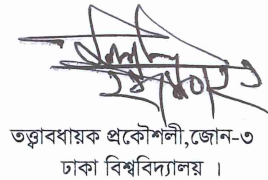 তত্ত্বাবধায়ক প্রকৌশলী,জোন-৩
ঢাকা বিশ্ববিদ্যালয় ।